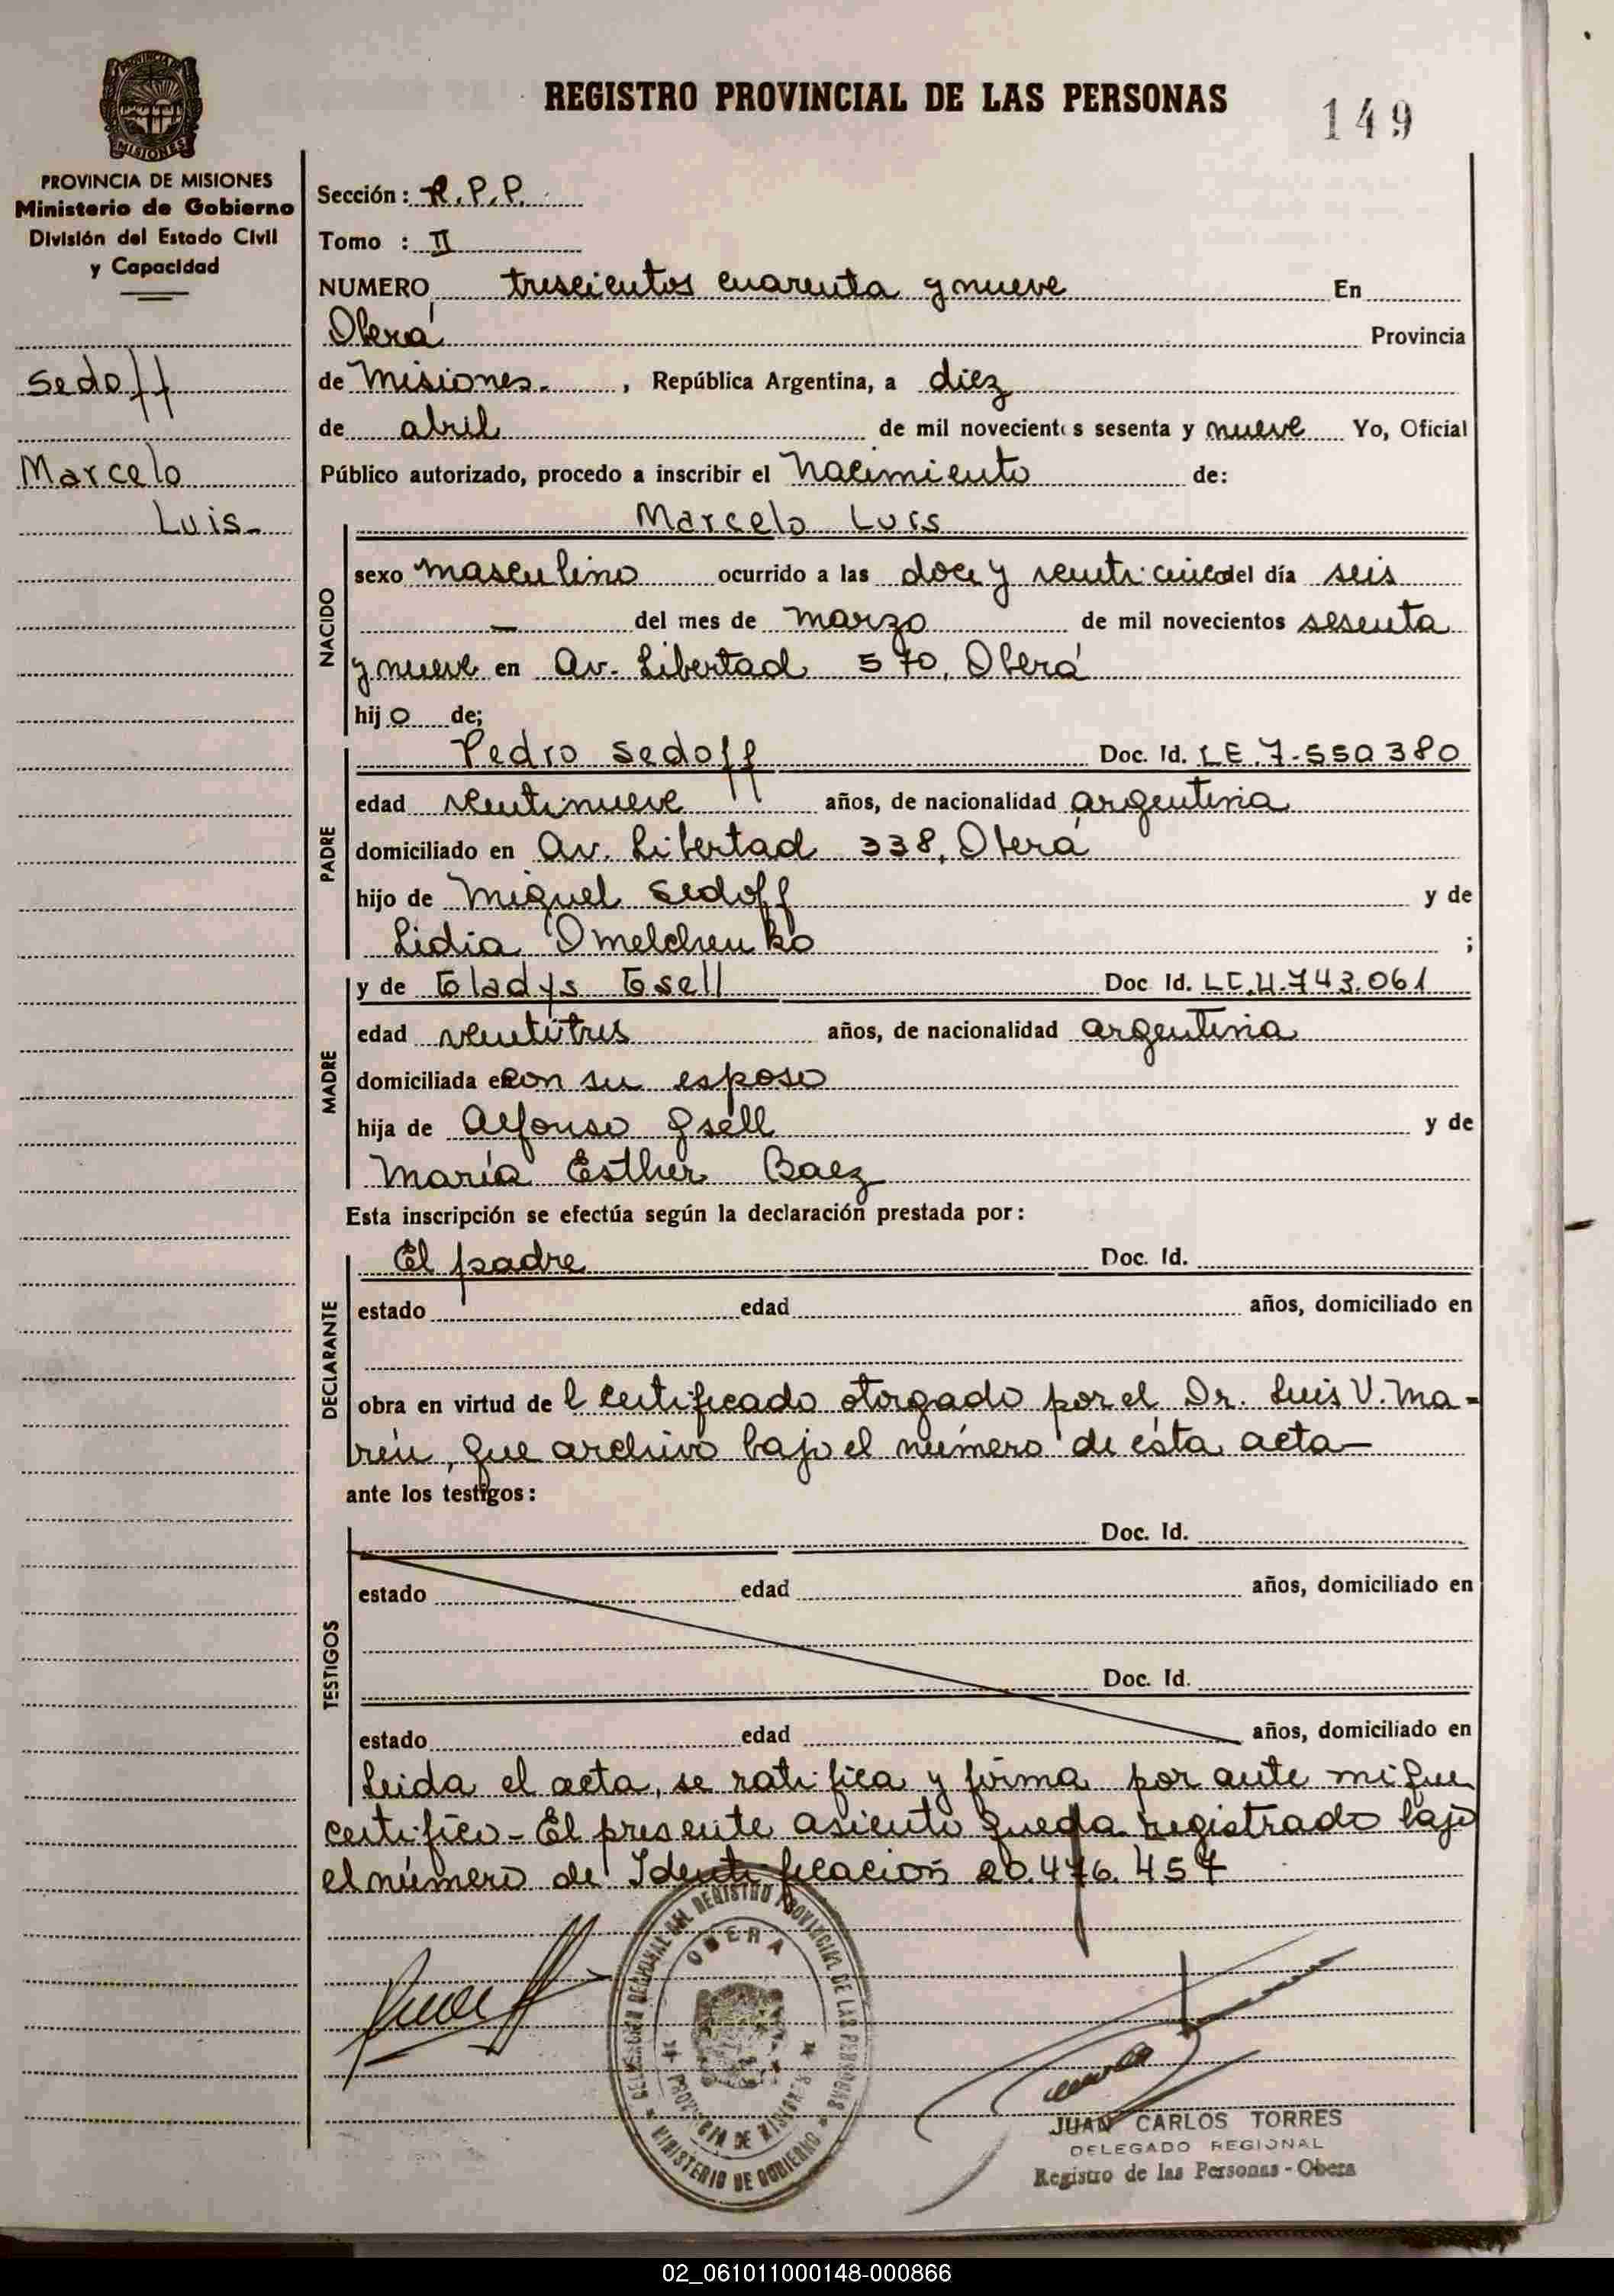 REGISTRO PROVINCIAL DE LAS PERSONAS
149
PROVINCIA DE
MISIONES
PROVINCIA DE MISIONES
Ministerio de Gobierno
División del Estado Civil
y Capacidad
Sedoff
Marcelo
Luis-
Sección: R.P.P.
Tomo : II
NUMERO trescientos cuarenta y nueve En
Oberá Provincia
de Misiones. , República Argentina, a diez
de abril de mil novecientos sesenta y nueve Yo, Oficial
Público autorizado, procedo a inscribir el nacimiento de:
Marcelo Luis
NACIDO
sexo masculino ocurrido a las doce y veinticinco del día seis
— del mes de marzo de mil novecientos sesenta
y nueve en Av. Libertad 570, Oberá
hijo de;
PADRE
Pedro Sedoff Doc. Id. LE.7.550380
edad veintinueve años, de nacionalidad argentina
domiciliado en Av. Libertad 338, Oberá
hijo de Miguel Sedoff y de
Lidia Omelchenko ;
MADRE
y de Gladys Gsell Doc Id. LC.4.743.061
edad veintitres años, de nacionalidad argentina
domiciliada en con su esposo
hija de Alfonso Gsell y de
María Esther Baez
Esta inscripción se efectúa según la declaración prestada por:
DECLARANTE
El padre Doc. Id.
estado edad años, domiciliado en
obra en virtud de l certificado otorgado por el Dr. Luis V. Ma-
, que archivo bajo el número de ésta acta—
ante los testigos:
TESTIGOS
Doc. Id.
estado edad años, domiciliado en
Doc. Id.
estado edad años, domiciliado en
Leida el acta, se ratifica y firma por ante mi que
certifico - El presente asiento queda registrado bajo
el número de Identificación 20.476.457
DELEGACION REGIONAL DEL REGISTRO PROVINCIAL DE LAS PERSONAS
OBERA
PROVINCIA DE MISIONES
MINISTERIO DE GOBIERNO
JUAN CARLOS TORRES
DELEGADO REGIONAL
Registro de las Personas - Obera
02_061011000148-000866